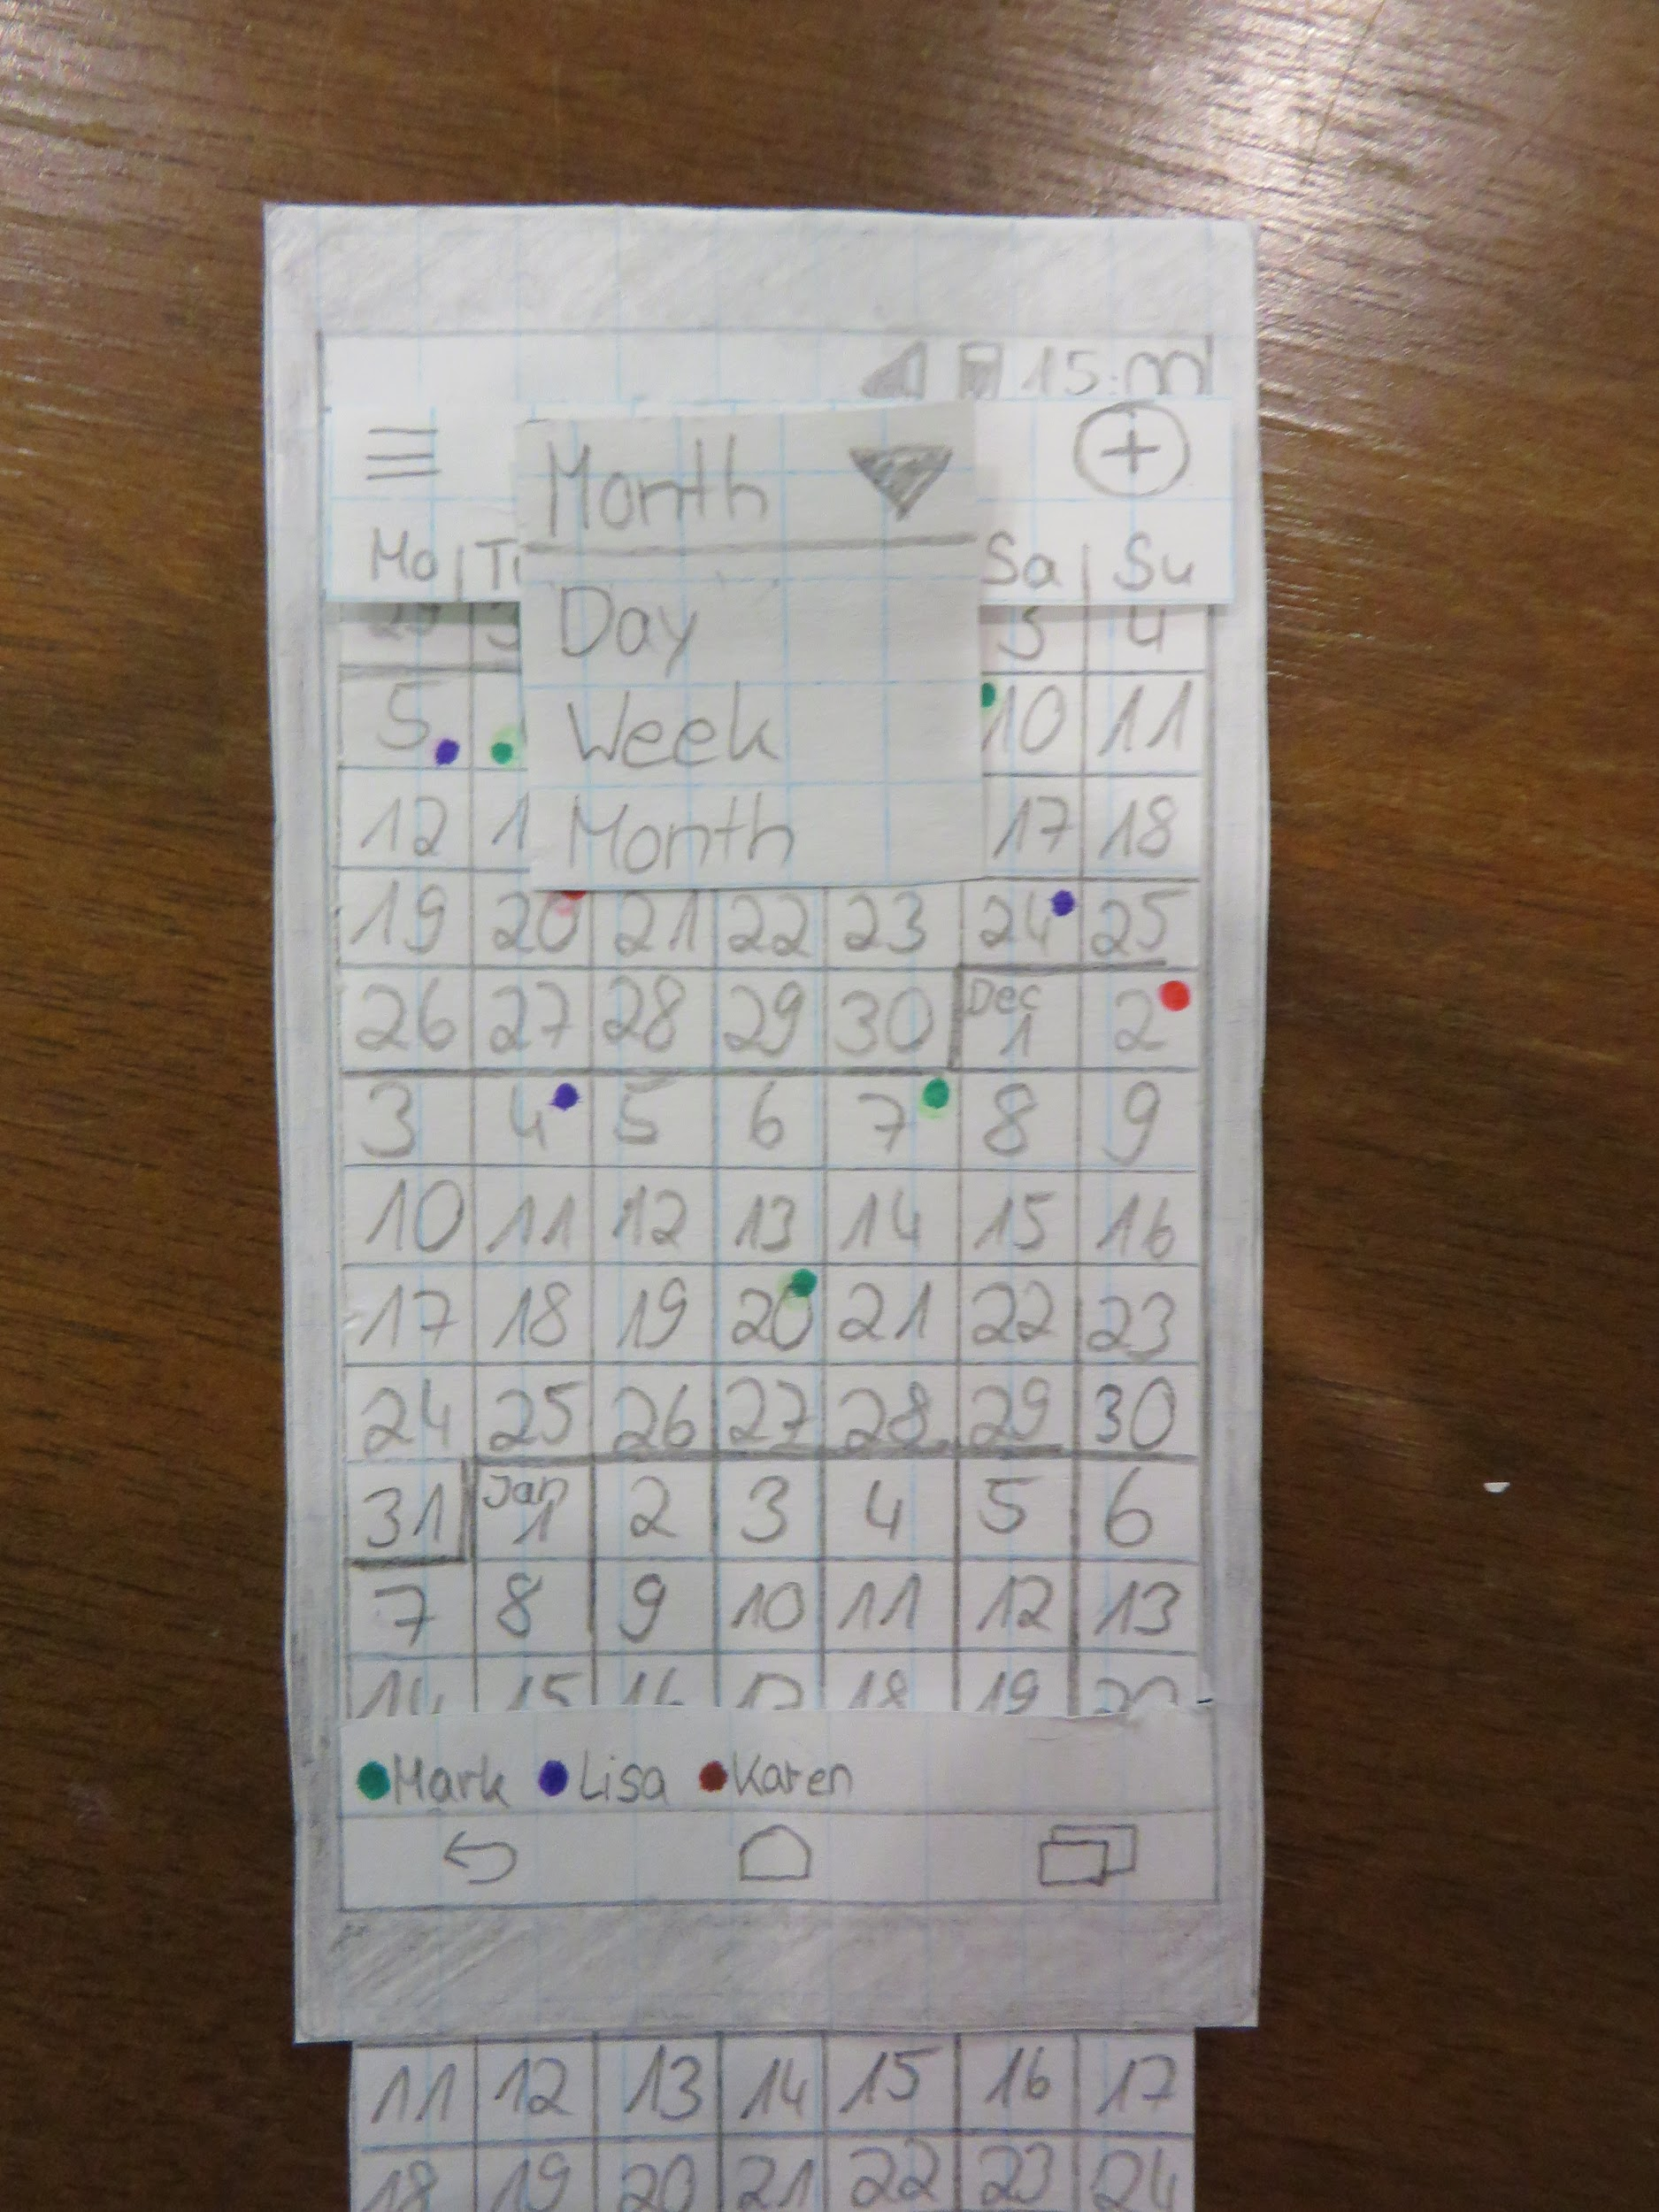 15:00
Month
Mo | Tu Sa | Su
Day
3 4
5 10 11
Week
12 17 18
Month
19 20 21 22 23 24 25
26 27 28 29 30 Dec 1 2
3 4 5 6 7 8 9
10 11 12 13 14 15 16
17 18 19 20 21 22 23
24 25 26 27 28 29 30
31 Jan 1 2 3 4 5 6
7 8 9 10 11 12 13
14 15 16 17 18 19 20
Mark Lisa Karen
11 12 13 14 15 16 17
18 19 20 21 22 23 24